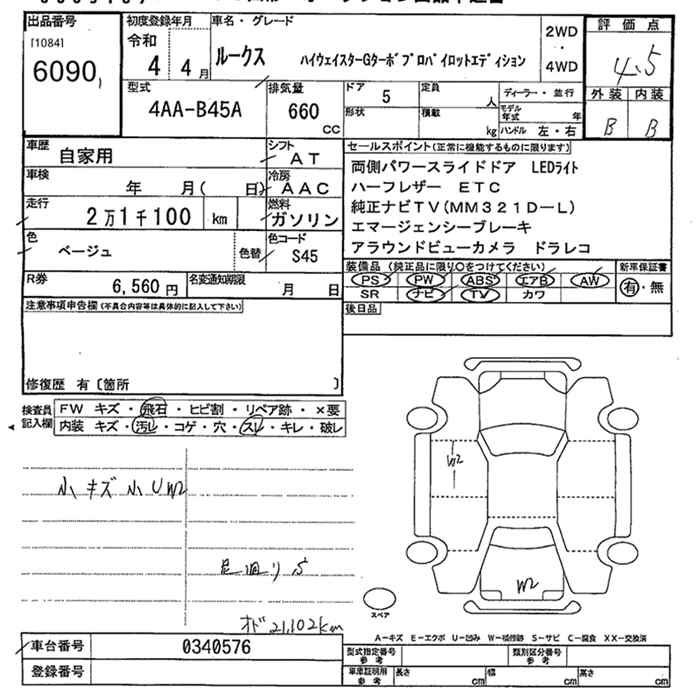 出品番号
[1084]
6090
初度登録年月
令和
4 4月
車名・グレード
ルークス ハイウェイスターGターボプロパイロットエディション
2WD
・
4WD
評価点
4.5
外装 内装
B B
型式
4AA-B45A
排気量
660
CC
ドア 5
形状
定員
人
積載
kg
ディーラー・並行
モデル年式 年
ハンドル 左・右
車歴
自家用
シフト
AT
車検
年 月( 日)
冷房
AAC
走行
2万1千100 km
燃料
ガソリン
色
ベージュ
色替
色コード
S45
R券
6,560円
名変通知期限
月 日
セールスポイント(正常に機能するものに限ります)
両側パワースライドドア LEDライト
ハーフレザー ETC
純正ナビTV(MM321D-L)
エマージェンシーブレーキ
アラウンドビューカメラ ドラレコ
装備品(純正品に限り○をつけてください)
PS PW ABS エアB AW
SR ナビ TV カワ
新車保証書
有・無
後日品
注意事項申告欄(不具合内容等は具体的に記入して下さい)
修復歴 有〔箇所 〕
検査員記入欄
FW キズ・飛石・ヒビ割・リペア跡・×要
内装 キズ・汚レ・コゲ・穴・スレ・キレ・破レ
小キズ小UW2
足廻りS
オド21,102km
W2
W2
スペア
A-キズ E-エクボ U-凹み W-補修跡 S-サビ C-腐食 XX-交換済
車台番号
0340576
登録番号
型式指定番号
参考
類別区分番号
参考
車庫証明用
参考
長さ cm
幅 cm
高さ cm